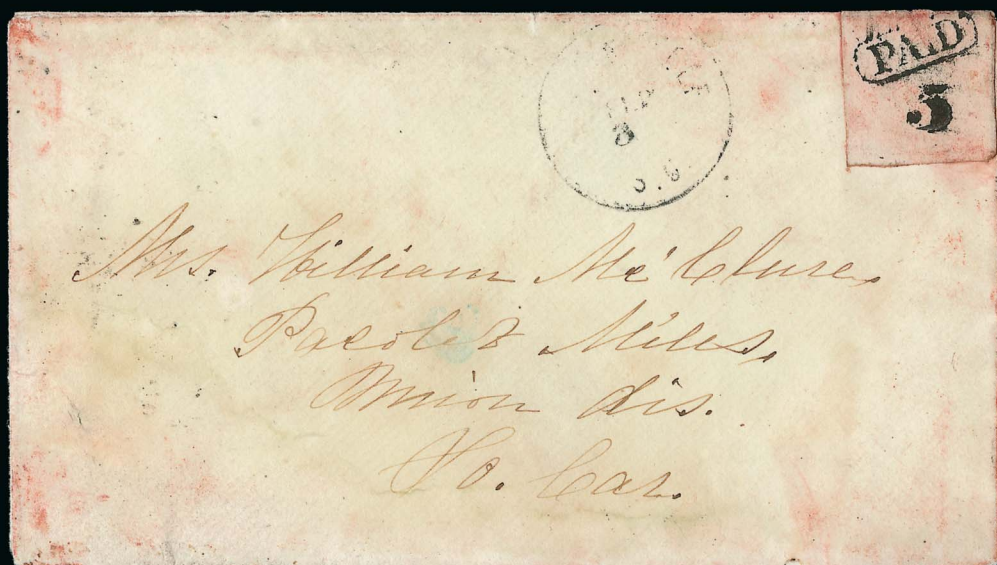 PAID
5
SEP
3
S.C
Mrs. William Mc'Clure,
Pacolet Mills,
Union dis.
So. Car.